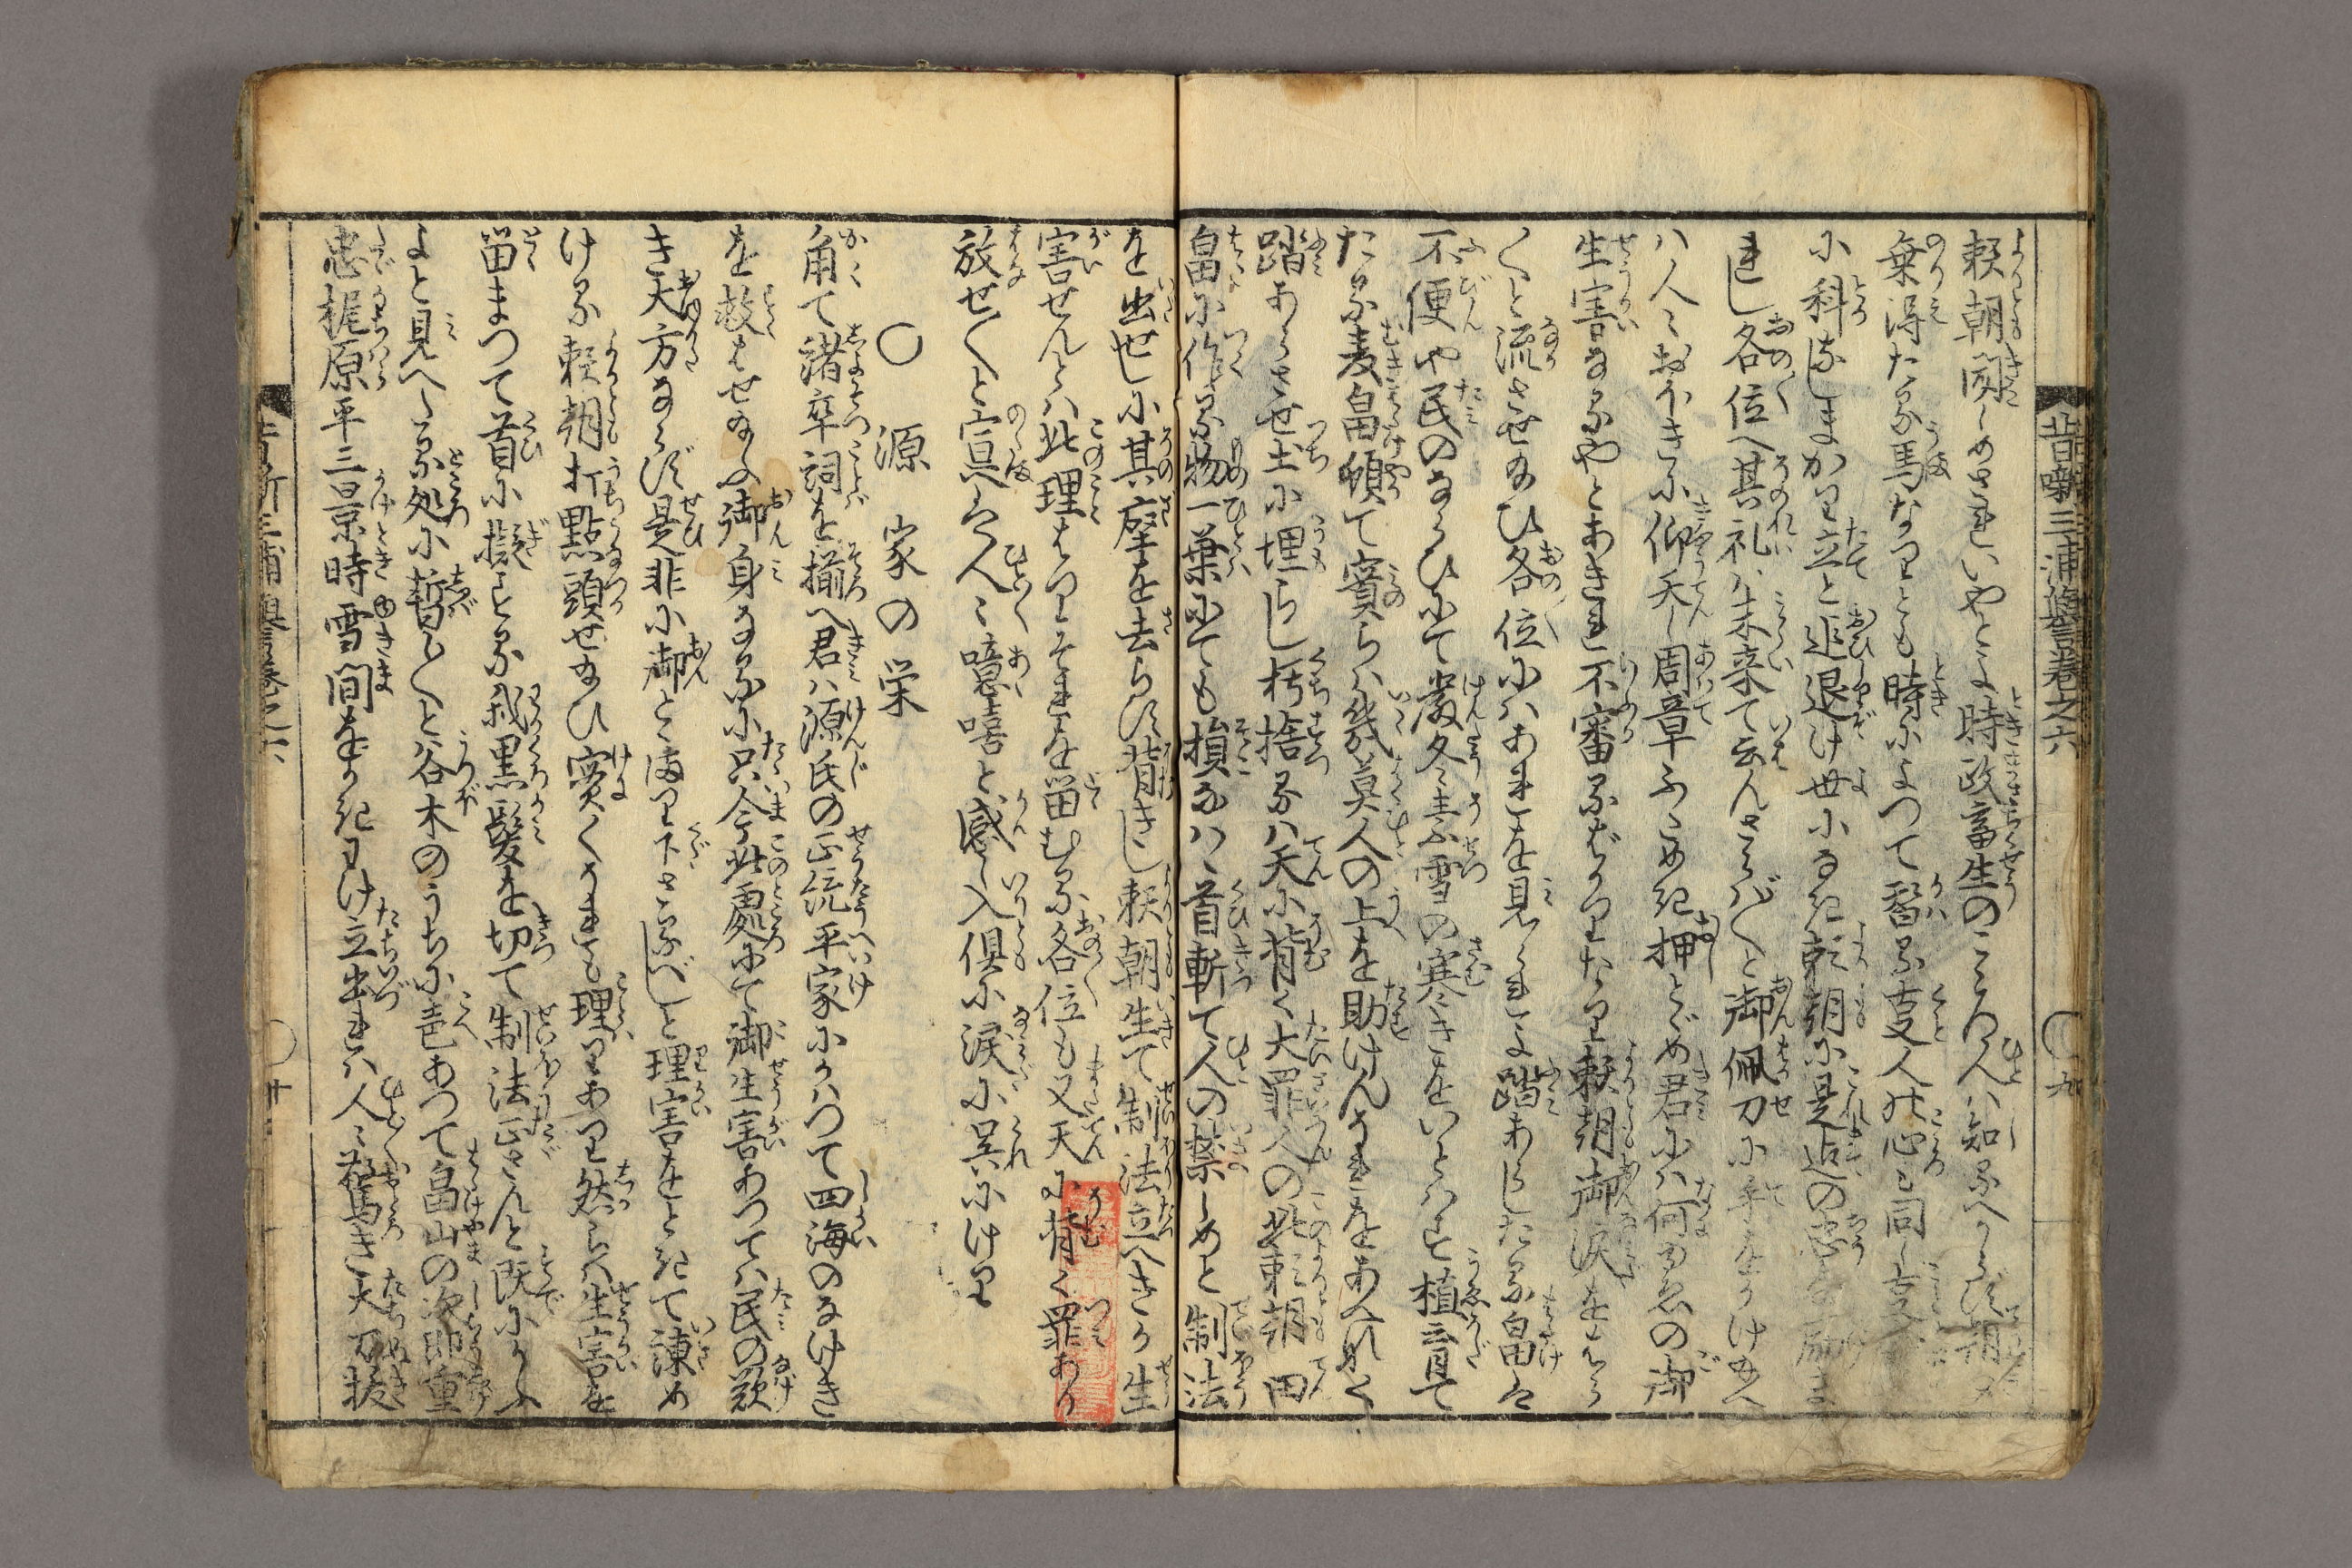 昔噺三浦誉巻之六
〇九
頼朝聞しめされいやとよ時政畜生のこゝろ人ハ知るへからず
乗得たる馬なりとも時によつて替る人の心も同し
に科なしまかり立と追退け世になき頼朝に是迄の忠
れし各位へ其礼ハ未来て云んさらバ〳〵と御佩刀に手をかけ給へ
ハ人〻おほきに仰天し周章ふためき押とゞめ君にハ何ゆゑの御
生害なるやとあきれ不審るばかりなり頼朝御涙をはら
〳〵と流させ給ひ各位にハあれを見られよ踏あらしたる畠は
不便や民のならひにて厳冬素雪の寒きをいとハす植育て
たる麦畠頓て実らハ幾莫人の上を助けんうれをあへなく
踏あらさせ土に埋らし朽捨るハ天に背く大罪人の此頼朝田
畠に作る物一葉にても損なハゝ首斬て人の禁しめと制法
を出せしに其座を去らず背きし頼朝生て制法立へきか生
害せんとハ此理はりそれを留むる各位も又天に背く罪あり
放せ〳〵と宣へる人〻噫嘻と感し入倶に涙に呉にけり
〇源家の栄
角て諸卒詞を揃へ君ハ源氏の正統平家にかハつて四海のなけき
を救はせ給ふ御身なるに只今此処にて御生害あつてハ民の歎
き大方ならず是非に御とゝまり下さるべしと理害をときて諫め
ける頼朝打點頭せ給ひ実〳〵うれも理りあり然らハ生害を
留まつて首に擬する我黒髪を切て制法正さんと既にかふ
よと見へしる処に暫し〳〵と谷木のうちに声あつて畠山の次郎重
忠梶原平三景時雪間をかきわけ立出れハ人〻驚き大刀抜
昔噺三浦誉巻之六
〇廿